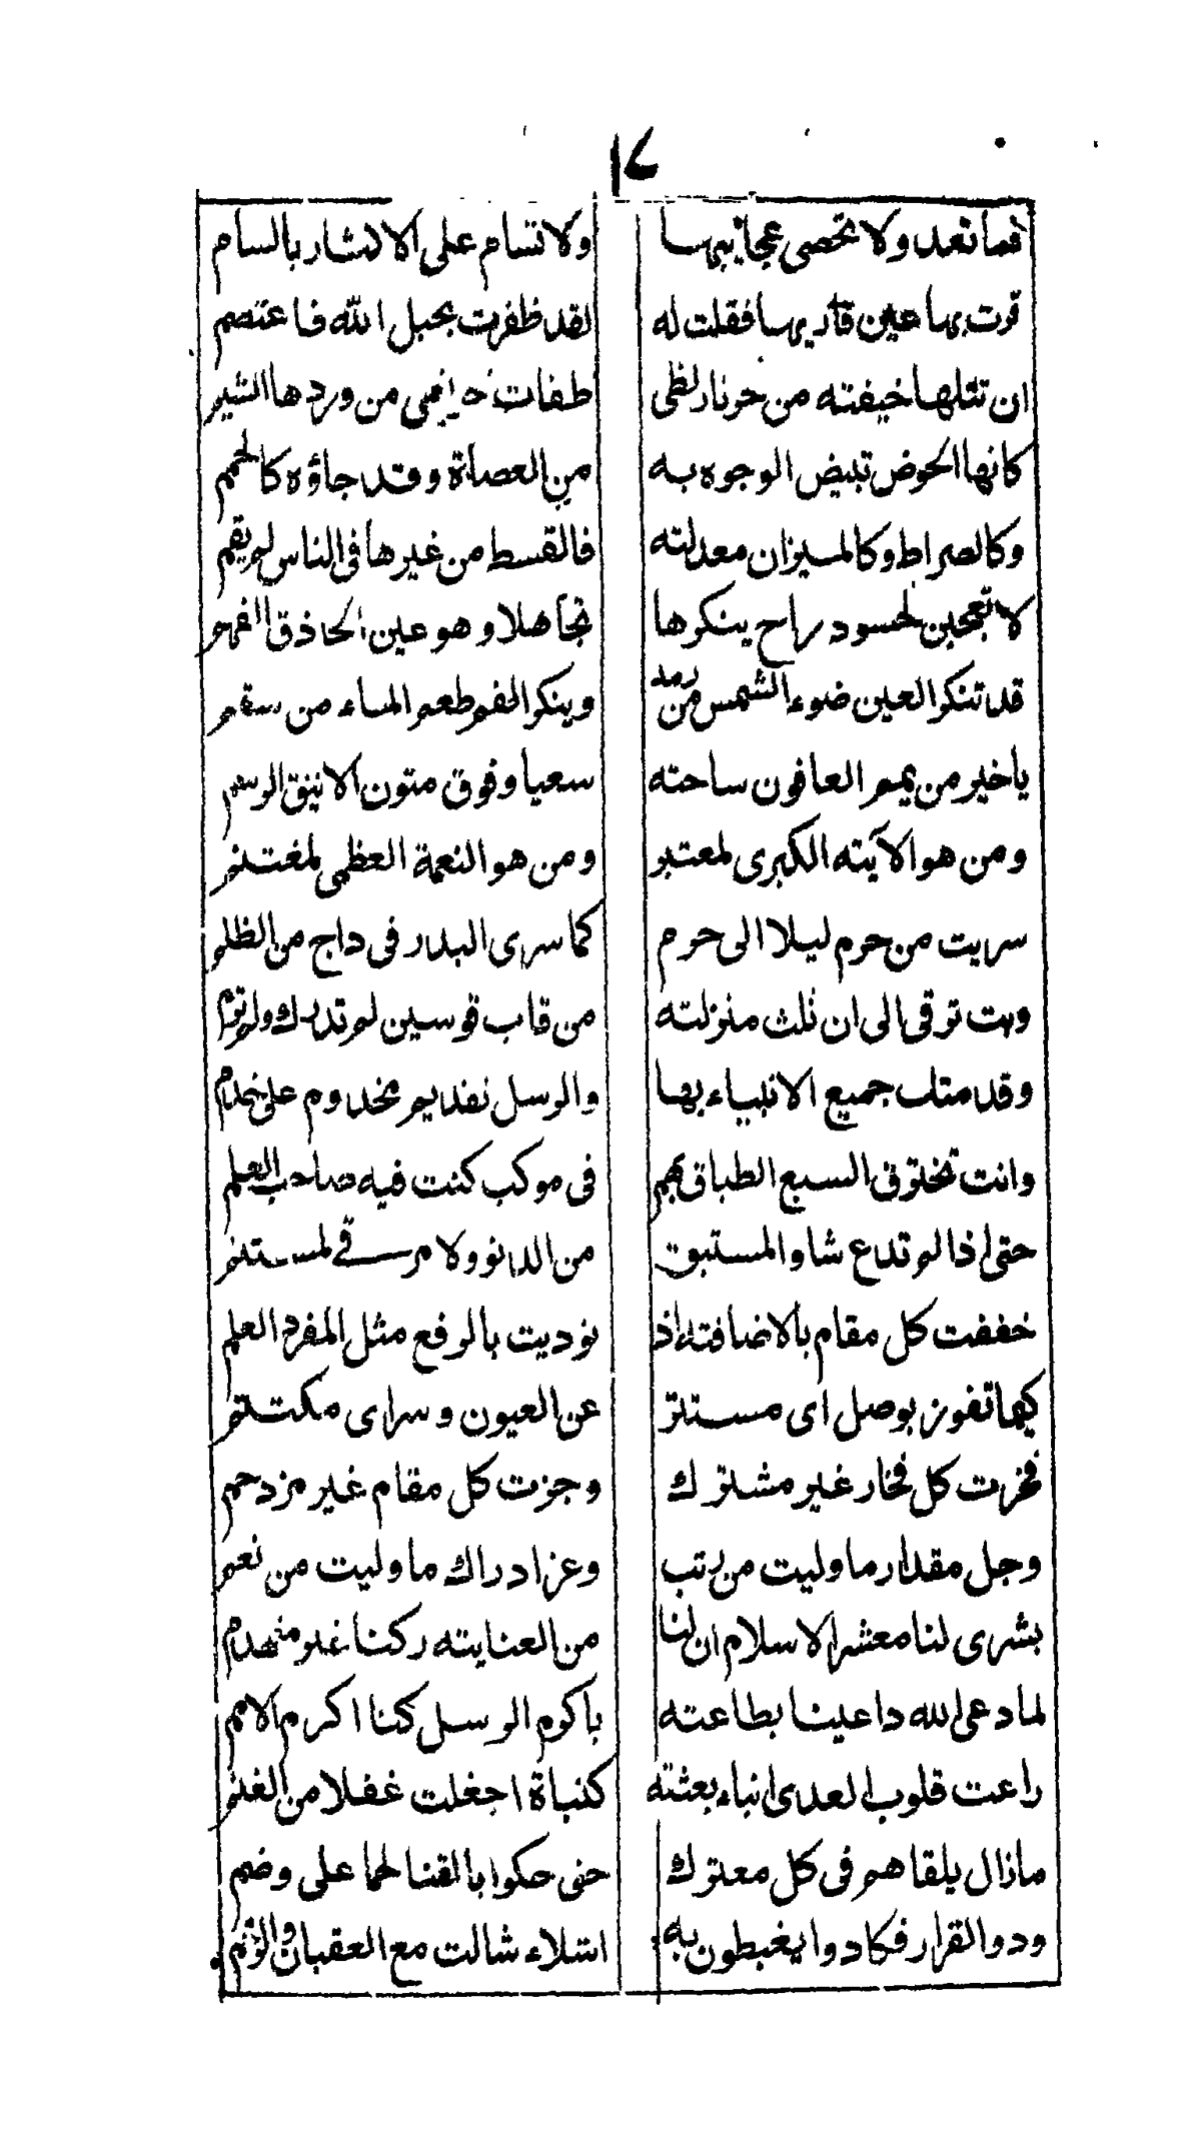 ١٧
فما تعد ولا تحصى عجائبها ولا تسام على الاكثار بالسام
قرت بها عين قاريها فقلت له لقد ظفرت بحبل الله فاعتصم
ان تتلها خيفته من حر نار لظى طفات من وردها الشبم
كانها الحوض تبيض الوجوه به من العصاة وقد جاؤه كالحمم
وكالصراط وكالميزان معدلته فالقسط من غيرها فى الناس لم يقم
لا تعجبن لحسود راح ينكرها تجاهلا وهو عين الحاذق الفهم
قد تنكر العين ضوء الشمس من رمد وينكر الفم طعم الماء من سقم
يا خير من يمم العافون ساحته سعيا وفوق متون الاينق الرسم
ومن هو الآيته الكبرى لمعتبر ومن هو النعمة العظمى لمغتنم
سريت من حرم ليلا الى حرم كما سرى البدر فى داج من الظلم
وبت ترقى الى ان نلت منزلته من قاب قوسين لم تدرك ولم ترم
وقدمتك جميع الانبياء بها والرسل تقديم مخدوم على خدم
وانت تخترق السبع الطباق بهم فى موكب كنت فيه صاحب العلم
حتى اذا لم تدع شاوا لمستبق من الدنو ولا مرقى لمستنم
خفضت كل مقام بالاضافته اذ نوديت بالرفع مثل المفرد العلم
كيما تفوز بوصل اى مستتر عن العيون وسراى مكتتم
فحزت كل فخار غير مشترك وجزت كل مقام غير مزدحم
وجل مقدار ما وليت من رتب وعز ادراك ما وليت من نعم
بشرى لنا معشر الاسلام ان لنا من العنايته ركنا غير منهدم
لما دعى الله داعينا بطاعته باكرم الرسل كنا اكرم الامم
راعت قلوب العدى انباء بعثته كنباة اجفلت غفلا من الغنم
مازال يلقاهم فى كل معترك حتى حكوا بالقنا لحما على وضم
ودوا الفرار فكادوا يغبطون به اشلاء شالت مع العقبان والرخم